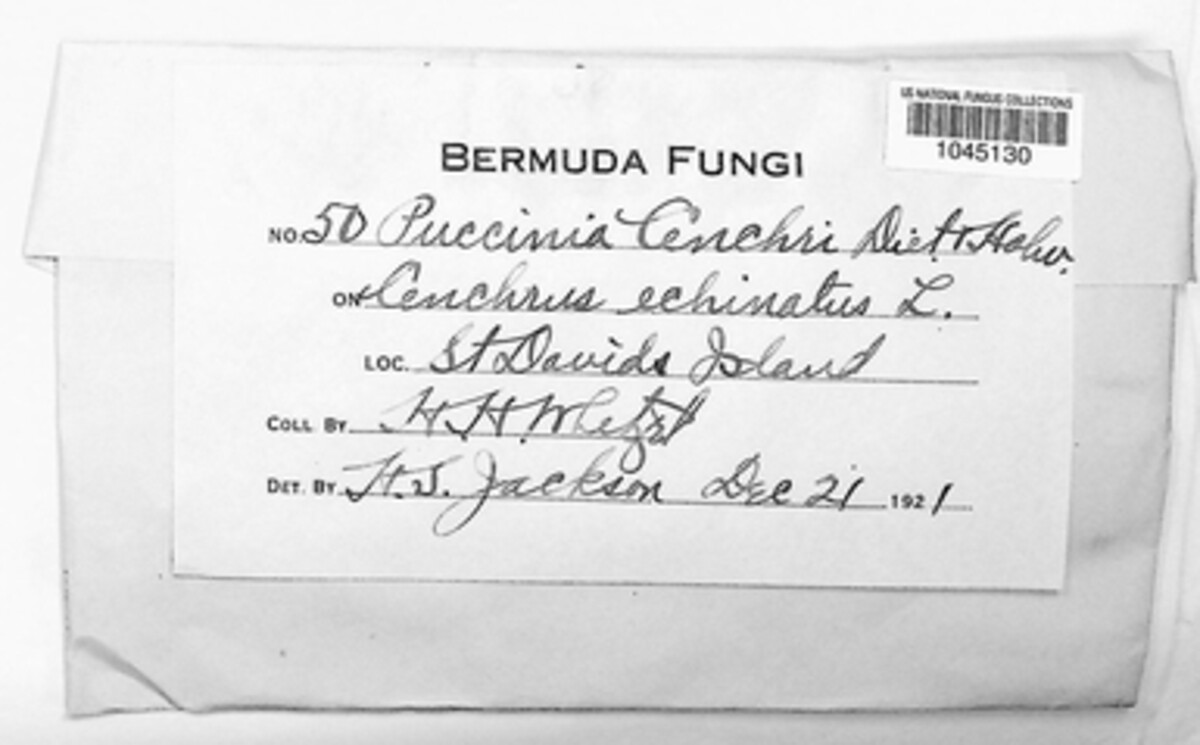 US NATIONAL FUNGUS COLLECTIONS
1045130
BERMUDA FUNGI
NO. 50 Puccinia Cenchri Diet. & Holw.
ON Cenchrus echinatus L.
LOC. St Davids Island
COLL BY H. H. Whetzel
DET. BY H. S. Jackson Dec 21 1921